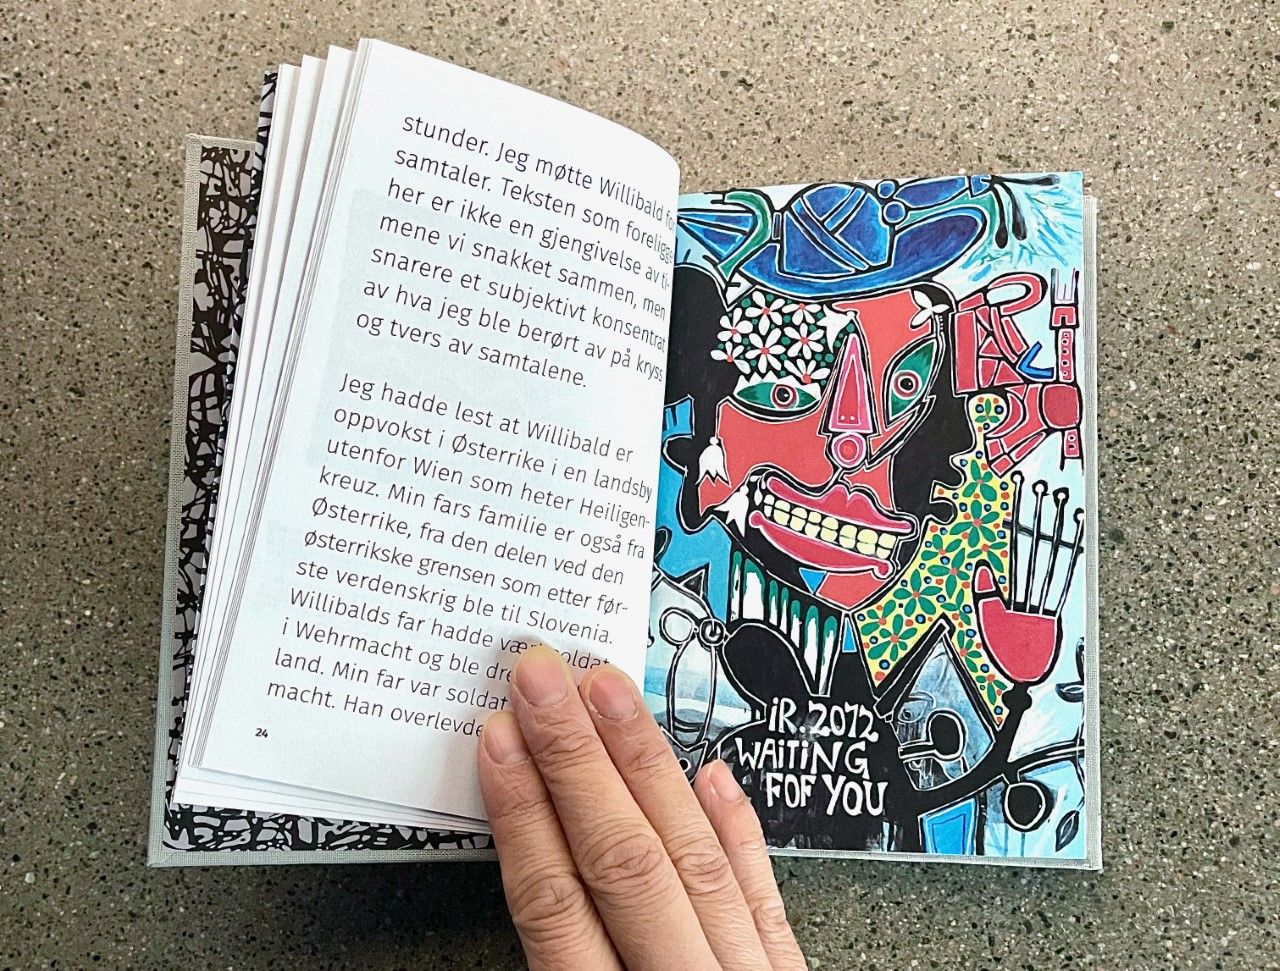 stunder. Jeg møtte Willibald
samtaler. Teksten som foreligg
her er ikke en gjengivelse av ti-
mene vi snakket sammen, men
snarere et subjektivt konsentrat
av hva jeg ble berørt av på kryss
og tvers av samtalene.
Jeg hadde lest at Willibald er
oppvokst i Østerrike i en landsby
utenfor Wien som heter Heiligen-
kreuz. Min fars familie er også fra
Østerrike, fra den delen ved den
østerrikske grensen som etter før-
ste verdenskrig ble til Slovenia.
Willibalds far hadde vært soldat
i Wehrmacht og ble
land. Min far var soldat
macht. Han overlevde
24
iR.2012
WAiTiNG
FOF YOU